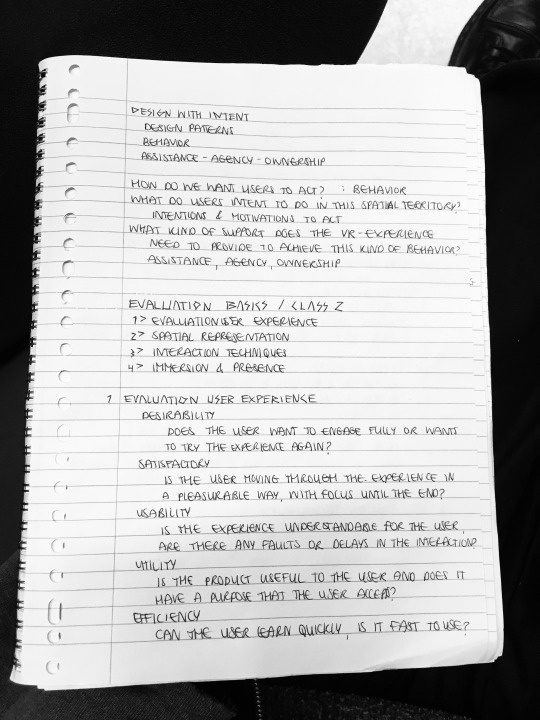 DESIGN WITH INTENT
DESIGN PATTERNS
BEHAVIOR
ASSISTANCE - AGENCY - OWNERSHIP
HOW DO WE WANT USERS TO ACT? : BEHAVIOR
WHAT DO USERS INTENT TO DO IN THIS SPATIAL TERRITORY?
INTENTIONS & MOTIVATIONS TO ACT
WHAT KIND OF SUPPORT DOES THE VR-EXPERIENCE
NEED TO PROVIDE TO ACHIEVE THIS KIND OF BEHAVIOR?
ASSISTANCE, AGENCY, OWNERSHIP
EVALUATION BASICS / CLASS 2
1> EVALUATION USER EXPERIENCE
2> SPATIAL REPRESENTATION
3> INTERACTION TECHNIQUES
4> IMMERSION & PRESENCE
1 EVALUATION USER EXPERIENCE
DESIRABILITY
DOES THE USER WANT TO ENGAGE FULLY OR WANTS
TO TRY THE EXPERIENCE AGAIN?
SATISFACTORY
IS THE USER MOVING THROUGH THE EXPERIENCE IN
A PLEASURABLE WAY, WITH FOCUS UNTIL THE END?
USABILITY
IS THE EXPERIENCE UNDERSTANDABLE FOR THE USER,
ARE THERE ANY FAULTS OR DELAYS IN THE INTERACTION?
UTILITY
IS THE PRODUCT USEFUL TO THE USER AND DOES IT
HAVE A PURPOSE THAT THE USER ACCEPTS?
EFFICIENCY
CAN THE USER LEARN QUICKLY, IS IT FAST TO USE?